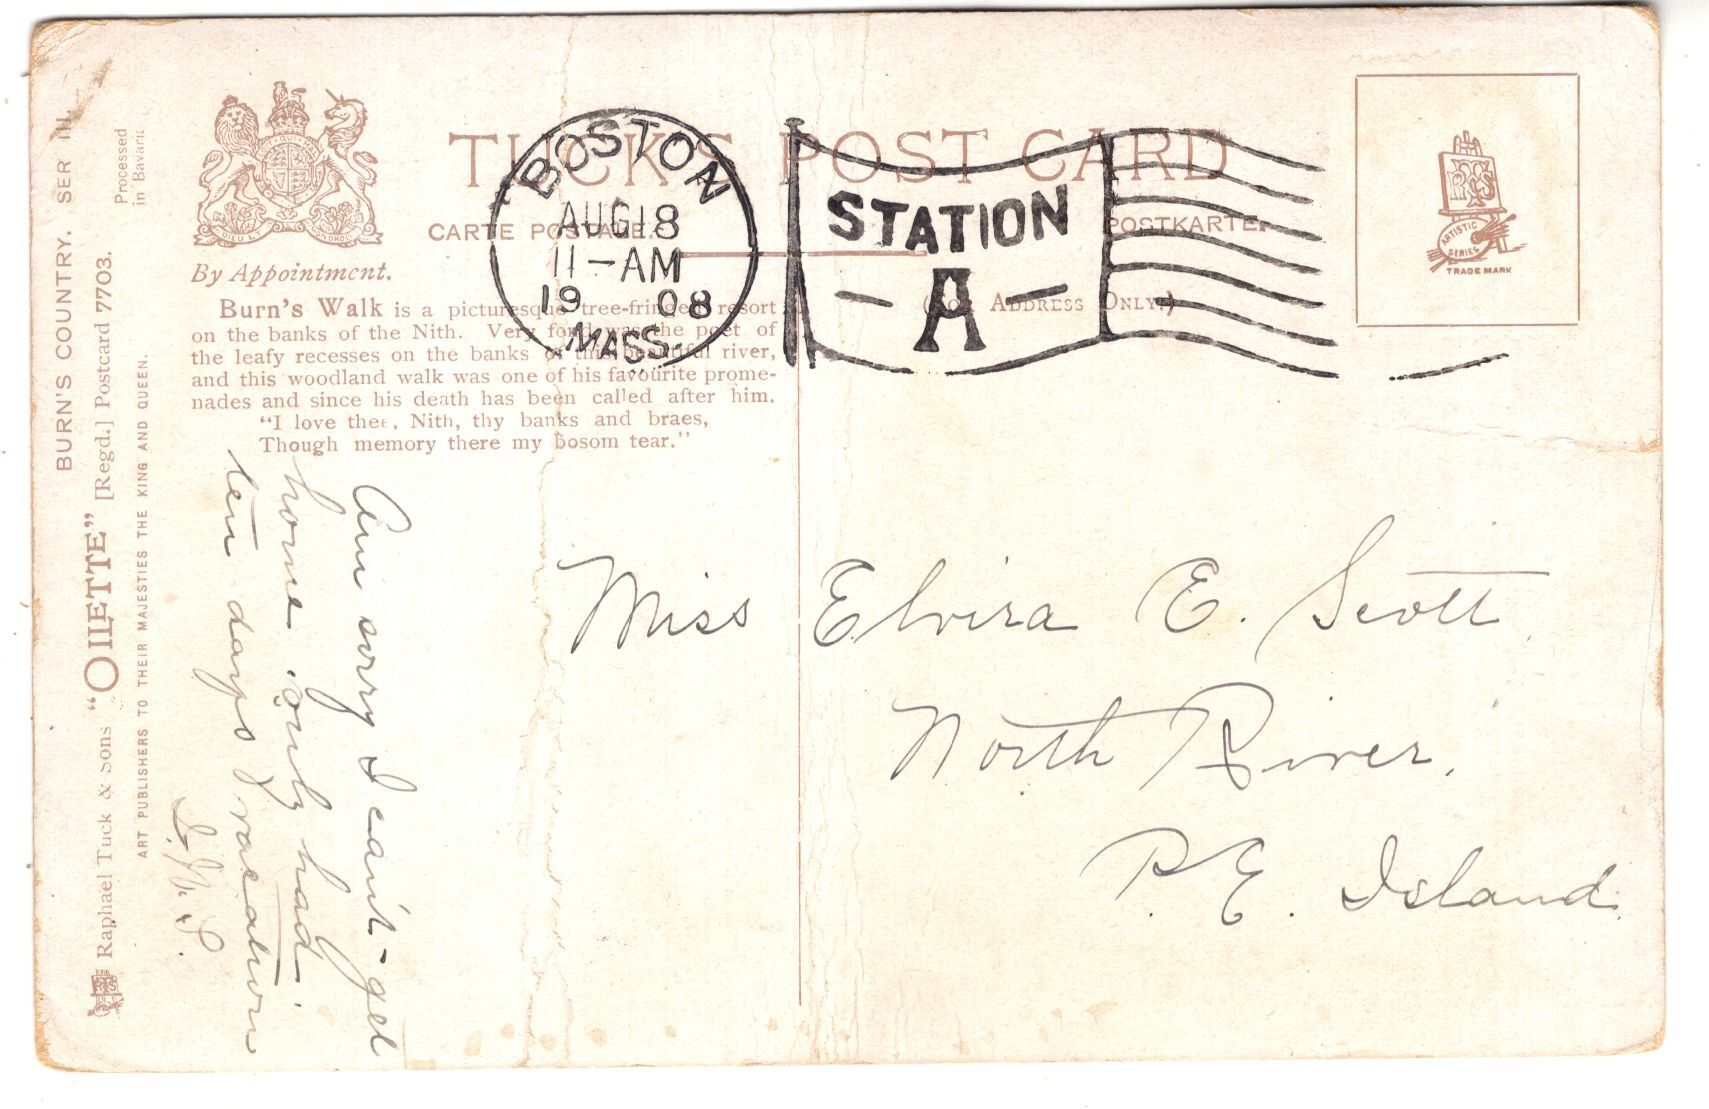 TUCK'S POST CARD
CARTE POSTALE.
POSTKARTE.
(FOR ADDRESS ONLY.)
BOSTON
AUG 18
11-AM
1908
MASS.
STATION
A
By Appointment.
Burn's Walk is a picturesque tree-fringed resort
on the banks of the Nith. Very fond was the poet of
the leafy recesses on the banks of this beautiful river,
and this woodland walk was one of his favourite prome-
nades and since his death has been called after him.
"I love thee, Nith, thy banks and braes,
Though memory there my bosom tear."
ARTISTIC
SERIES
TRADE MARK
BURN'S COUNTRY. SER III.
Processed
in Bavaria
Raphael Tuck & Sons "OILETTE" [Regd.] Postcard 7703.
ART PUBLISHERS TO THEIR MAJESTIES THE KING AND QUEEN.
Am sorry I can't get
home, only had
ten days vacation
Miss Elvira E. Scott
North River.
P. E. Island.